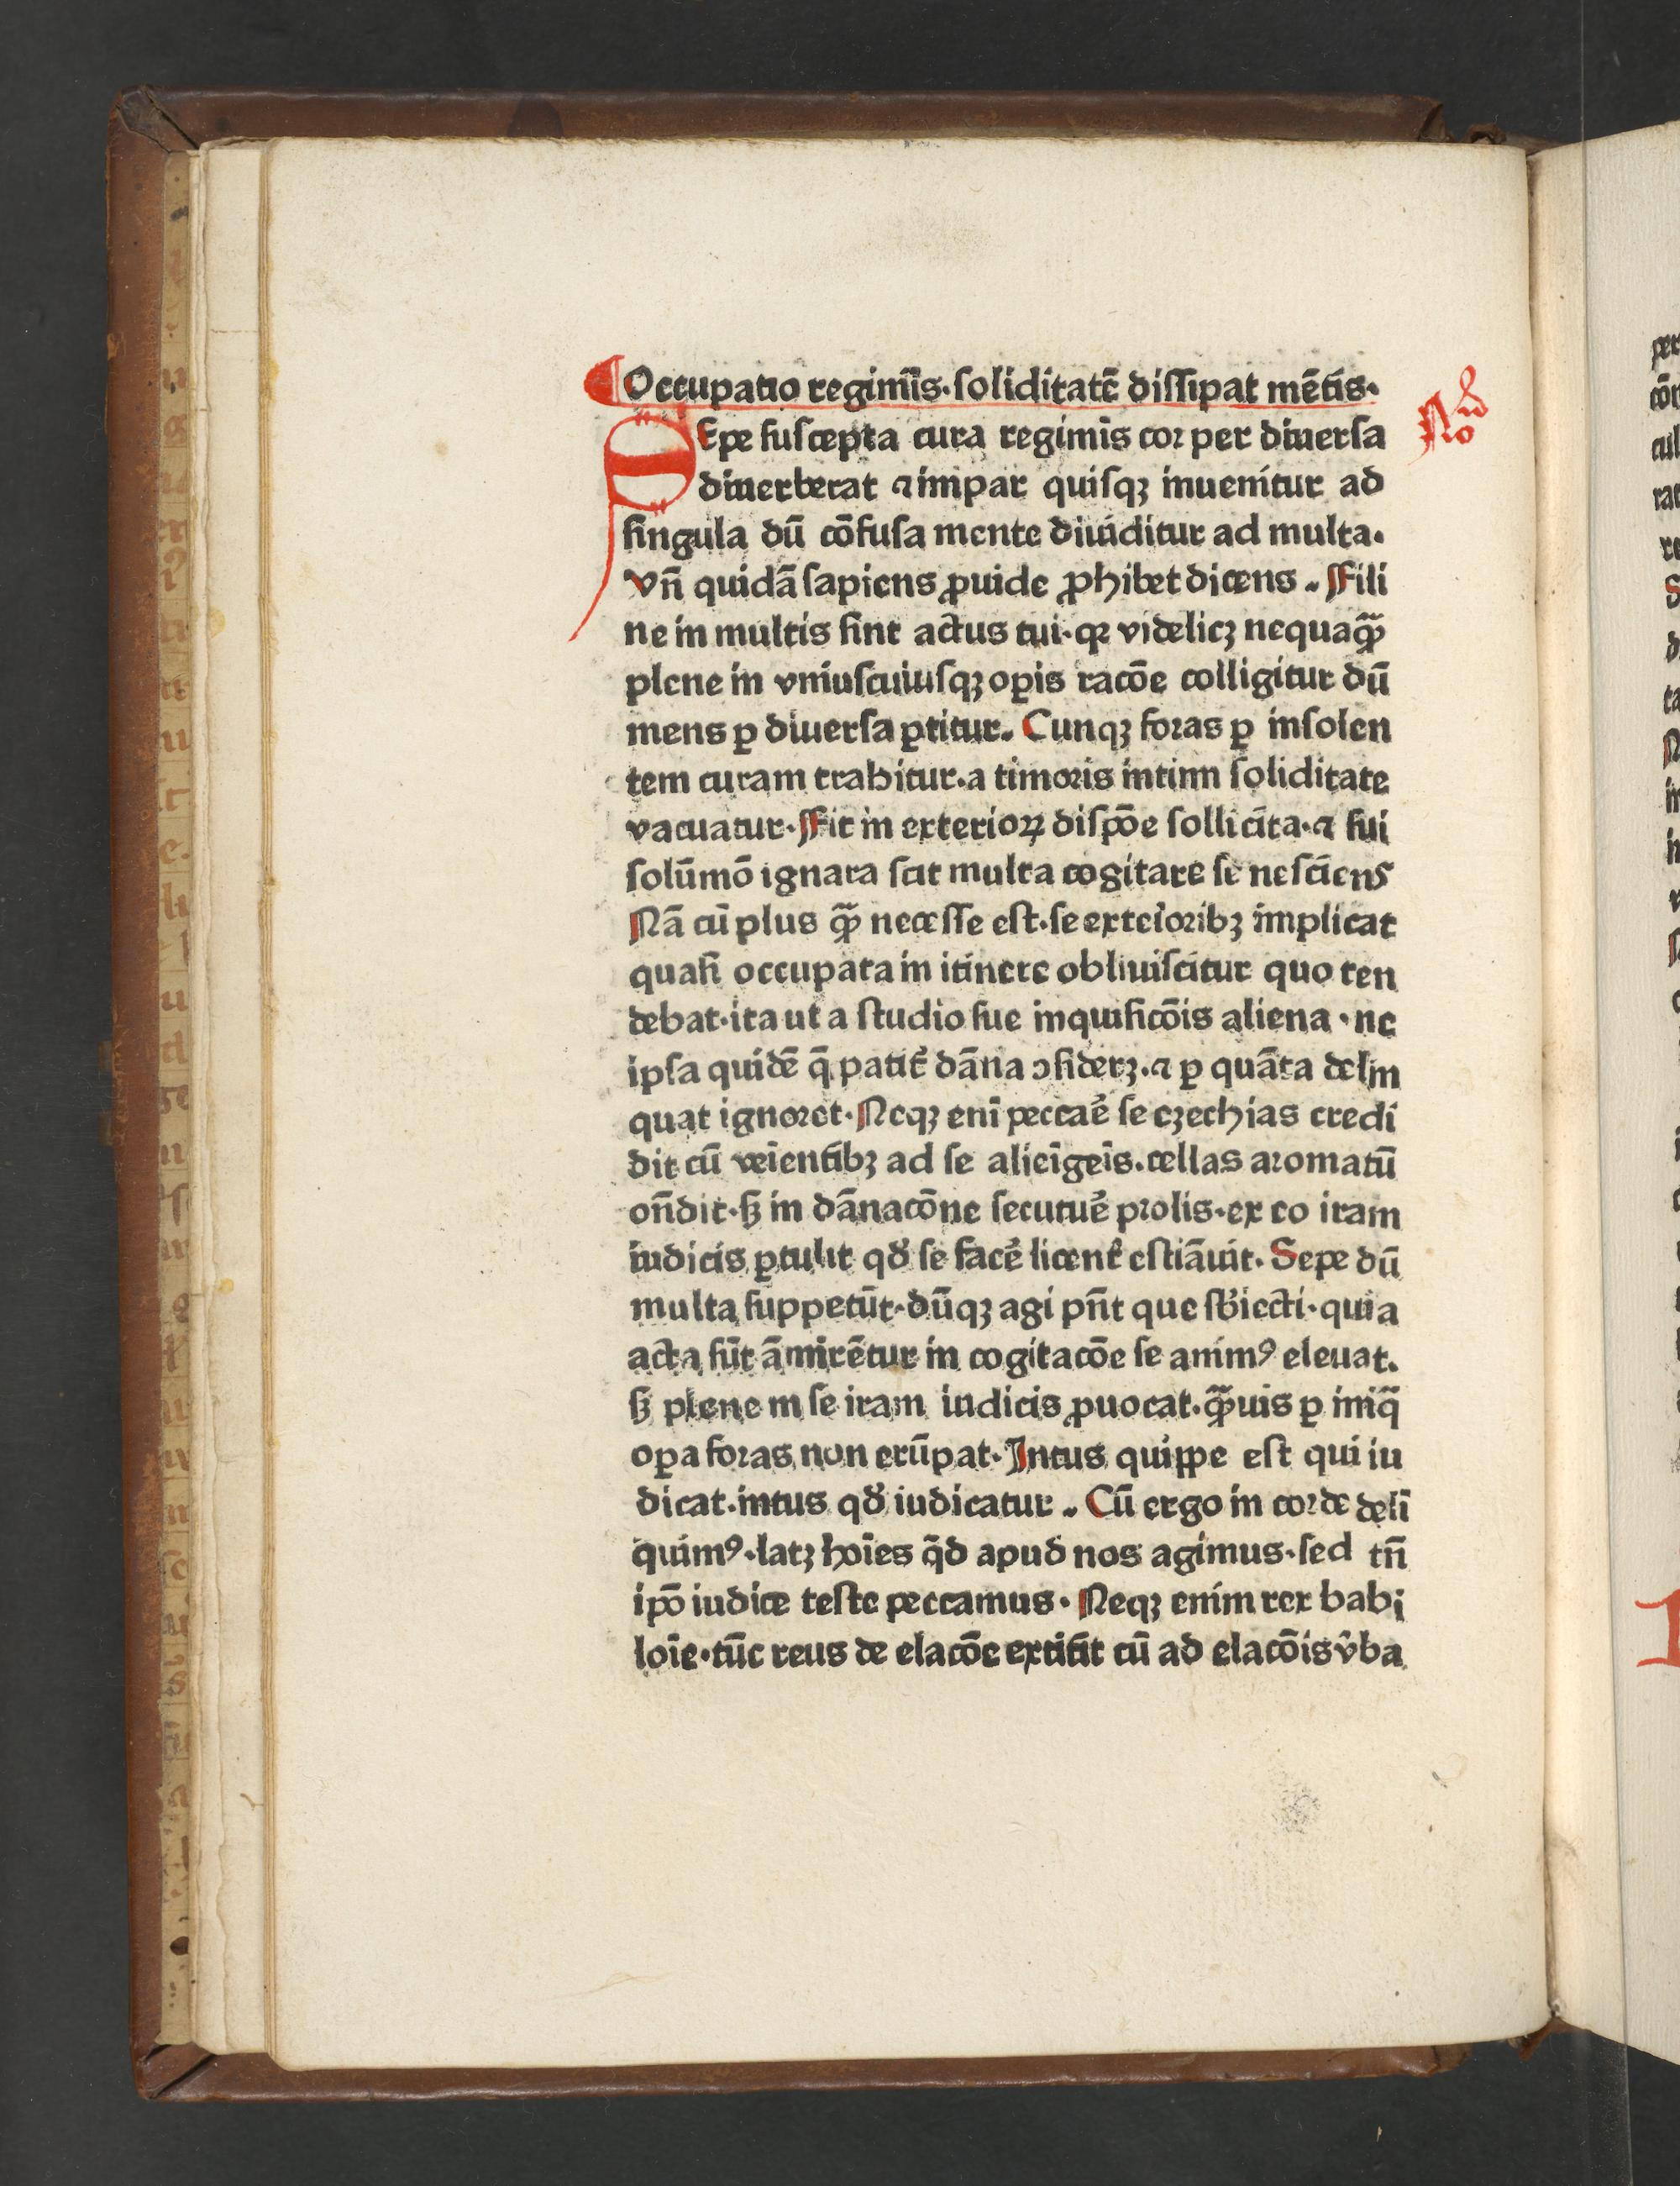 Occupatio regimīs·soliditatē dissipat mētis·
SEpe suscepta cura regimis cor per diuersa
diuerberat ⁊ impar quisqꝫ inuenitur ad
singula dū cōfusa mente diuiditur ad multa.
Vn̄ quidā sapiens ꝓuide ꝓhibet dicens. Ffili
ne in multis sint actus tui·qꝛ videlicꝫ nequaqꝫ̄
plene in vniuscuiusqꝫ oꝑis racōe colligitur dū
mens ꝑ diuersa ꝑtitur. Cunqꝫ foras ꝑ insolen
tem curam trahitur.a timoris intimi soliditate
vacuatur·Ffit in exterioꝝ dispōe sollicita·⁊ sui
solūmō ignara scit multa cogitare se nesciens
Nā cū plus qꝫ̄ necesse est·se exterioribꝫ implicat
quasi occupata in itinere obliuiscitur quo ten
debat·ita ut a studio sue inquisicōis aliena·ne
ipsa quidē q̄ patit᷑ dāna ↄsiderꝫ.⁊ ꝑ quāta delin
quat ignoret·Neqꝫ eni peccae᷑ se ezechias credi
dit cū veientibꝫ ad se alieigeis.cellas aromatū
on̄dit·sꝫ in dānacōne secutue᷑ prolis·ex eo iram
iudicis ꝑtulit qđ se face᷑ licent᷑ estiāuit· Sepe dū
multa suppetūt·dūqꝫ agi pn̄t que sb̄iecti·quia
acta sūt āmirētur in cogitacōe se animꝰ eleuat.
sꝫ plene in se iram iudicis ꝓuocat.qꝫ̄uis ꝑ iniq̄
oꝑa foras non erūpat·Intus quippe est qui iu
dicat.intus qđ iudicatur. Cū ergo in corde deli
quimꝰ·latꝫ hōies q̄d apud nos agimus·sed tn̄
ipō iudice teste peccamus· Neqꝫ enim rex babi
loīe·tūc reus de elacōe extitit cū ad elacōis v᷑ba